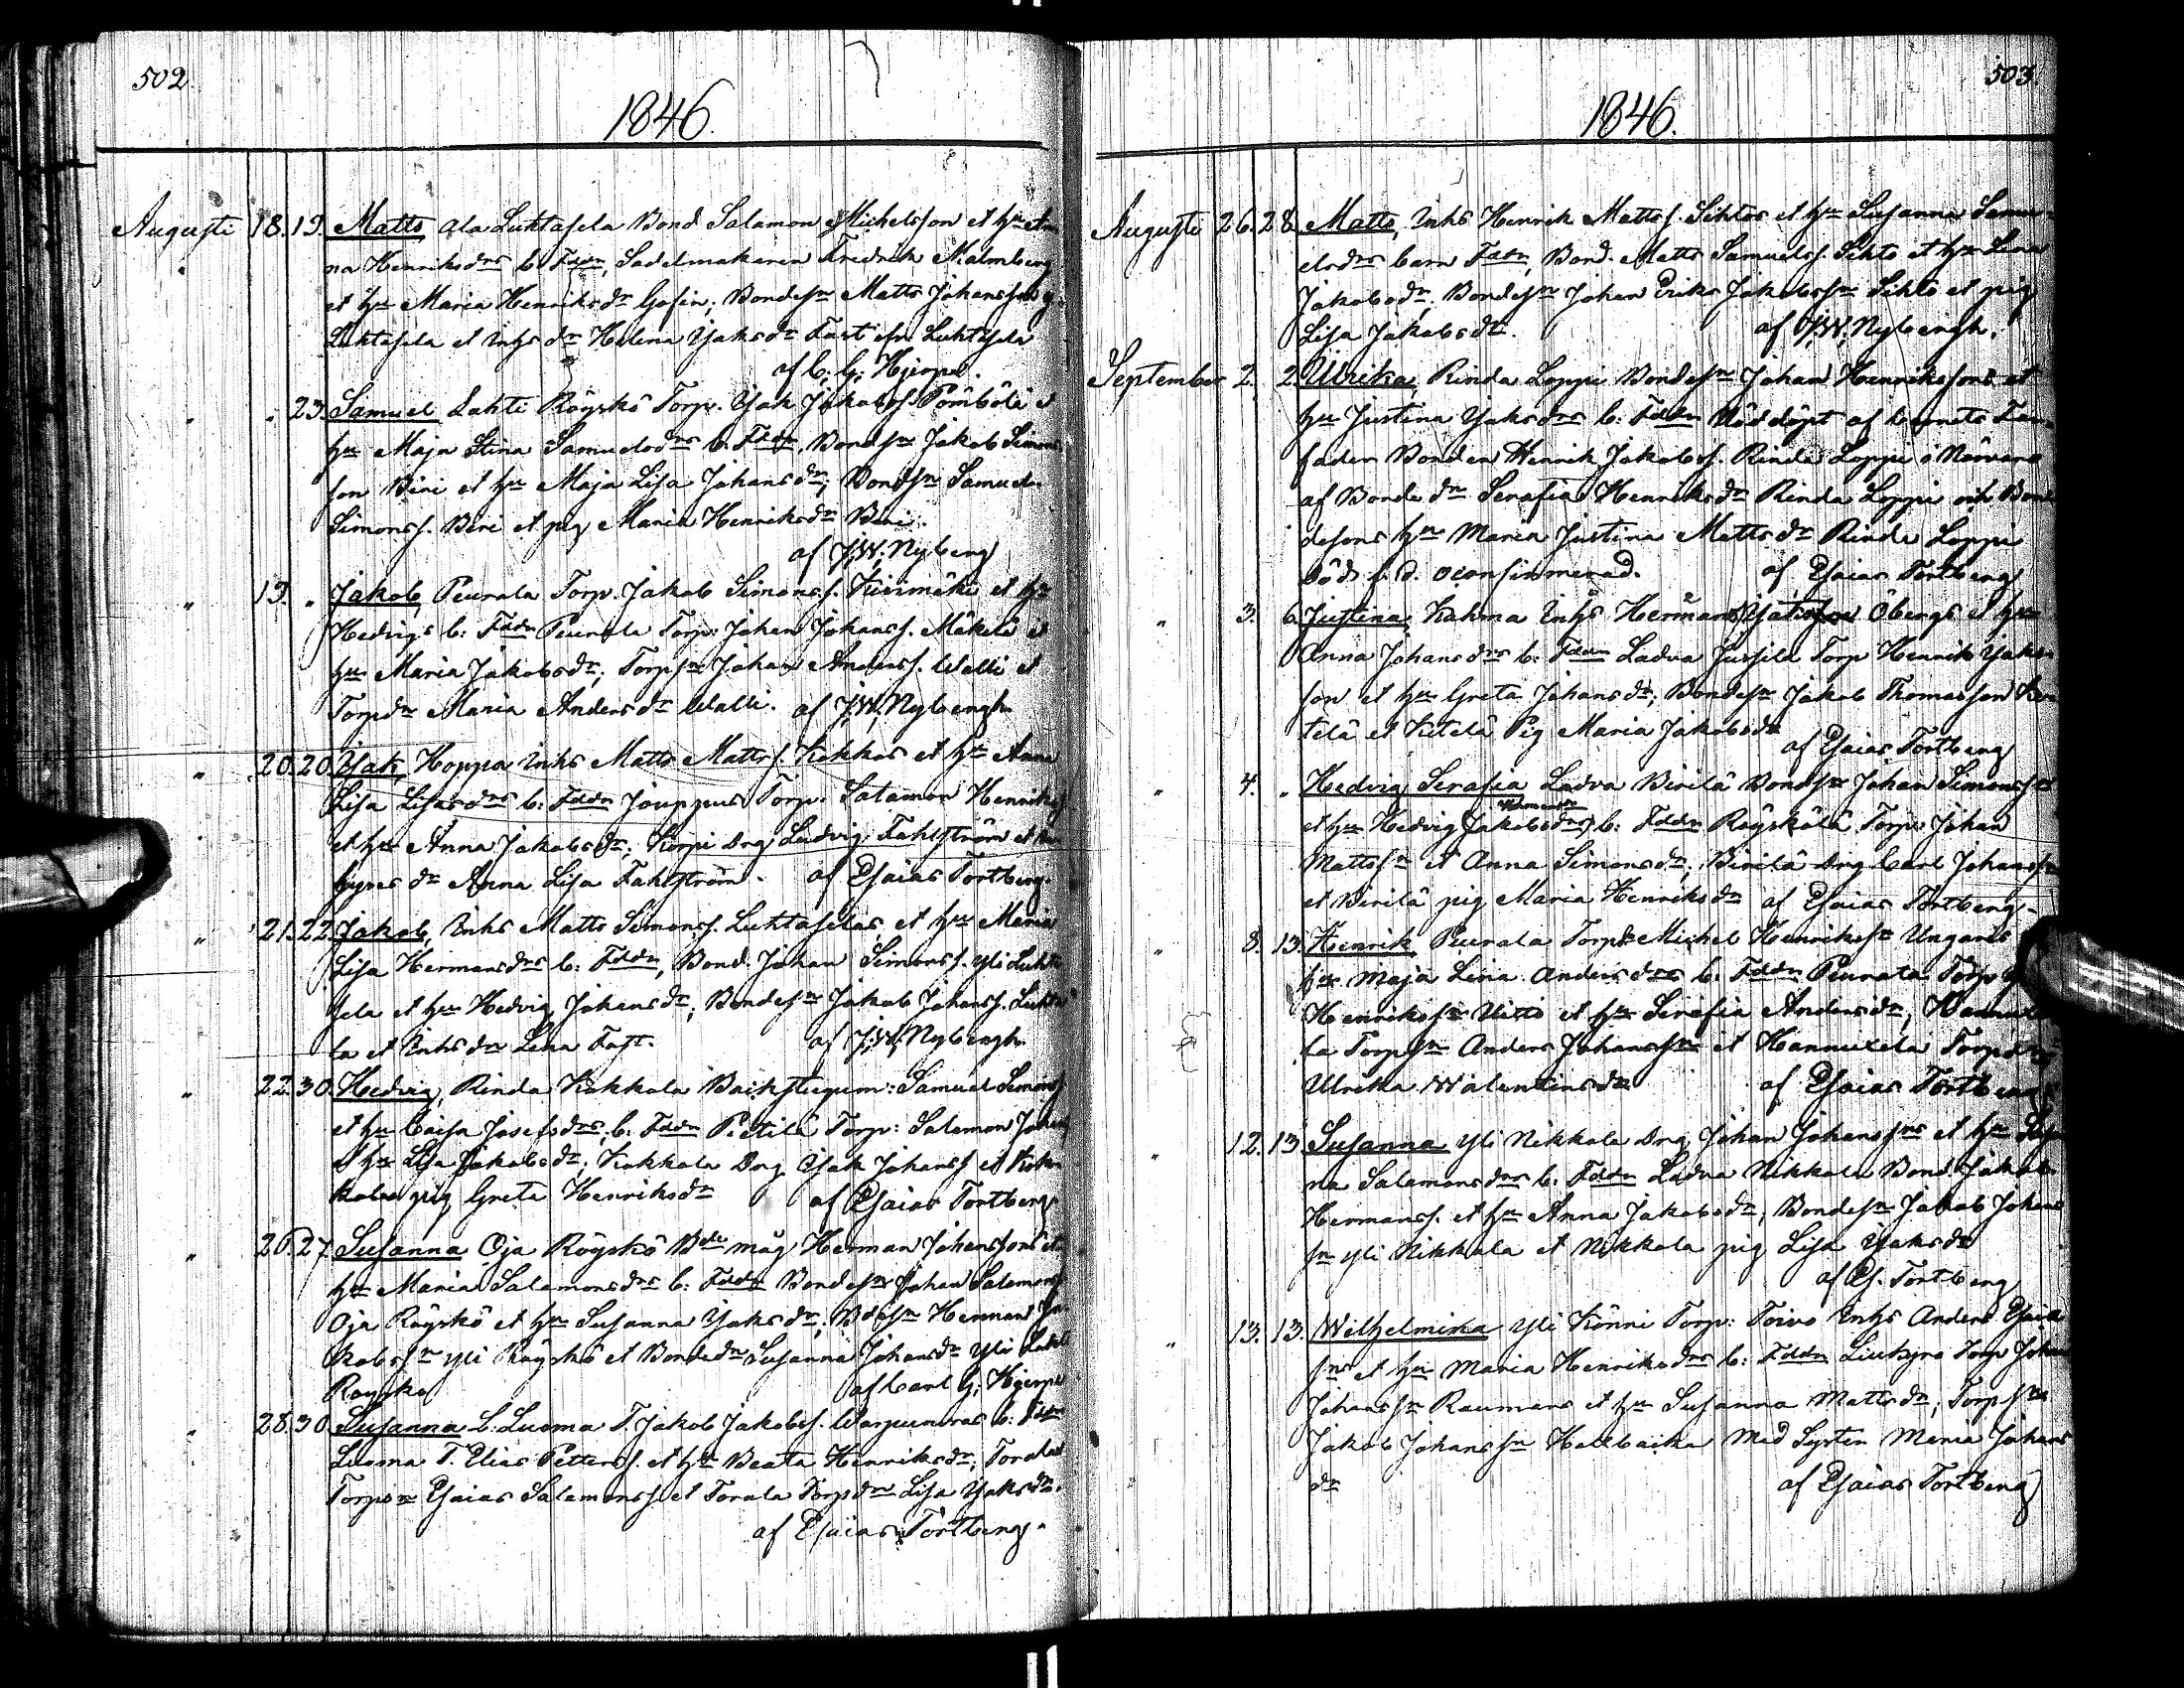 502.
1846.
Augusti 18. 19. Matts Ala Luhtasela Bond. Salamon Michelsson et hu An-
na Henriksdrs b. Fddr, Sadelmakaren Fredrik Malmberg
et hu Maria Henriksdr Bondesn Matts Johansson
Luhtasela et Inhs dr Helena Isaksdr Fast ifr. Luhtasela
af C. G. Hjerpe.
" " 23. Samuel Lahti Röyskö Torp. Isak Jakobss. et
hu Maja Stina Samuelsdrs b. Fddr, Bondsn Jakob Simons
son Biri et hu Maja Lisa Johansdr; Bondsn Samuel
Simonss. Biri et pig Maria Henriksdr Biri.
af J. W. Nyberg
" 19. " Jakob, Peurala Torp. Jakob Simonss. Kivimäki et hu
Hedvigs b: Fddr Peurala Torp: Johan Johanss. Mäkelä et
hu Maria Jakobsdr; Torpsn Johan Anderss. Walli et
Torpdr Maria Andersdr Walli. af J. W. Nybergh
" 20. 20. Isak, Hoppa Inhs Matts Mattss. Kokkos et hu Anna
Lisa Lisasdrs b: Fddr Jouppus Torp. Salamon Henriks
et hu Anna Jakobsdr; Korpi Drg Ludvig Fahlström et
dr Anna Lisa Fahlström. af Esaias Tortberg.
" 21. 22. Jakob, Inhs Matts Simonss. Luhtaselas et hu Maria
Lisa Hermansdrs b: Fddr, Bond. Johan Simonss. Yli Luhta
sela et hu Hedvig Johansdr; Bondesn Jakob Johanss. Luhta
la et Inhsdr Lena Fast. af J. W. Nybergh
" 22. 30. Hedvig, Rinda Kokkola Samuel Simons
et hu Caisa Josefsdrs b: Fddr Pietilä Torp: Salamon Johans
et hu Lisa Jakobsdr; Kokkola Drg Isak Johanss et Kok-
kola pig Greta Henriksdr af Esaias Tortberg
" 26. 27. Susanna, Oja Röyskö Bde måg Herman Johanssons et
hu Maria Salamonsdrs b: Fddr Bondesn Johan Salamons
Oja Röyskö et hu Susanna Isaksdr; Bdesn Herman Ja-
kobssn Yli Röyskö et Bondedr Susanna Johansdr Yli Lahti
Royskö af Carl G. Hjerpe
" 28. 30. Susanna L. Luoma T. Jakob Jakobss. b: Fddr
Luoma T. Elias Petterss. et hu Beata Henriksdr; Torala
Torpsn Esaias Salamonss et Torala Torpdr Lisa Isaksdr.
af Esaias Tortberg.
503.
1846.
Augusti 26. 28. Matts, Inhs Henrik Mattss. Sihtos et hu Susanna Samu-
elsdrs barn Fddr, Bond. Matts Samuelss. Sihto et hu Lena
Jakobsdr; Bondesn Johan Eriks Jakobssn Sihto et pig
Lisa Jakobsdr. af J. W. Nybergh.
September 2. 2. Ulrika, Rinda Loppi Bondesn Johan Henrikssons et
hu Justina Isaksdrs b: Fddr Nöddöpt af barnets Far-
fader Bonden Henrik Jakobss. Rinda Loppi i Närvaro
af Bonde dr Serafia Henriksdr Rinda Loppi och Bon
desons hu Maria Justina Mattsdr Rinda Loppi
Död s. d. oconfirmerad. af Esaias Tortberg
" 3. 6. Justina, Kahma Inhs Herman Öbergs et hu
Anna Johansdrs b: Fddr Ladva Jussila Torp Henrik Isaks
son et hu Greta Johansdr; Bondesn Jakob Thomasson Ke-
telä et Ketelä Pig Maria Jakobsdr
af Esaias Tortberg
" 4. " Hedvig Serafia Ladva Birilä Bondsn Johan Simonss
et hu Hedvig Jakobsdrs b: Fddr Röysköla Torp: Johan
Mattssn et Anna Simonsdr; Birilä Drg Carl Johanssn
et Birilä pig Maria Henriksdr af Esaias Tortberg.
" 8. 13. Henrik, Peurala Torpdr Michel Henrikssn Ungars
hu Maja Lena Andersdrs b: Fddr Peurala Torp
Henrikssn Uitto et hu Serafia Andersdr; Hannuxe
la Torpsn Anders Johanssn et Hannuxela Torpdr
Ulrika Walentinsdr af Esaias Tortberg
" 12. 13. Susanna Yli Nikkola Drg Johan Johanssns et hu Susa
na Salamonsdrs b: Fddr Ladva Nikkola Bond. Jakob
Hermanss. et hu Anna Jakobsdr; Bondesn Jakob Johans
sn Yli Nikkola et Nikkola pig Lisa Isaksdr
af Es. Tortberg
" 13. 13. Wilhelmina Yli Könni Torp: Toivo Inhs Anders Esaia
sns et hu Maria Henriksdrs b: Fddr Liukyro Torp Johan
Johanssn Raumans et hu Susanna Mattsdr; Torpsn
Jakob Johanssn Hallbacka Med Systen Maria Johans
dr af Esaias Tortberg